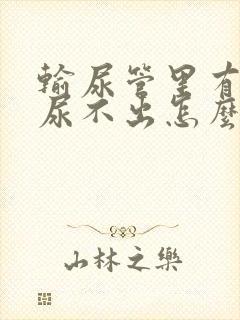 輸尿管里有
尿不出怎麼
山林之樂